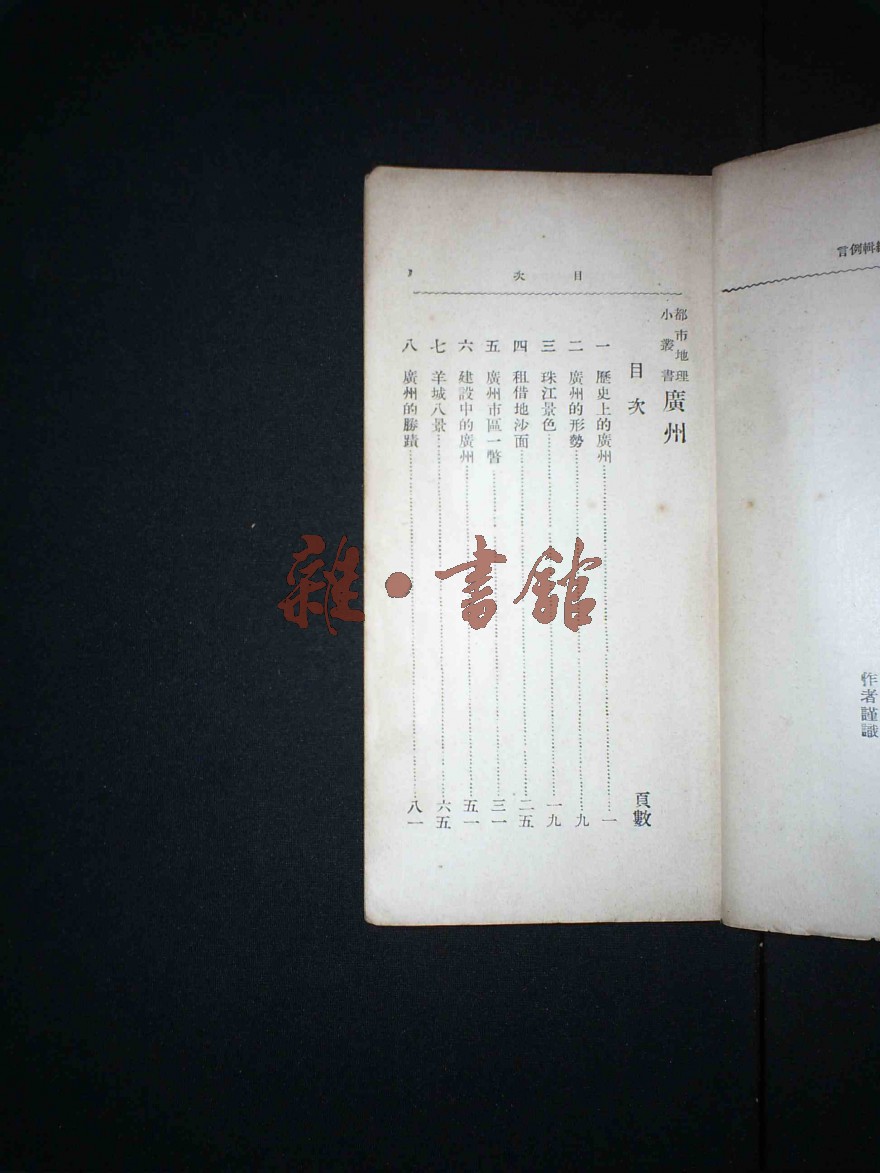 言例輯
作者謹識
次 目
都市地理
小叢書
廣州
目次
頁數
一 歷史上的廣州 一
二 廣州的形勢 九
三 珠江景色 一九
四 租借地沙面 二五
五 廣州市區一瞥 三一
六 建設中的廣州 五一
七 羊城八景 六五
八 廣州的勝蹟 八一
雜·書館